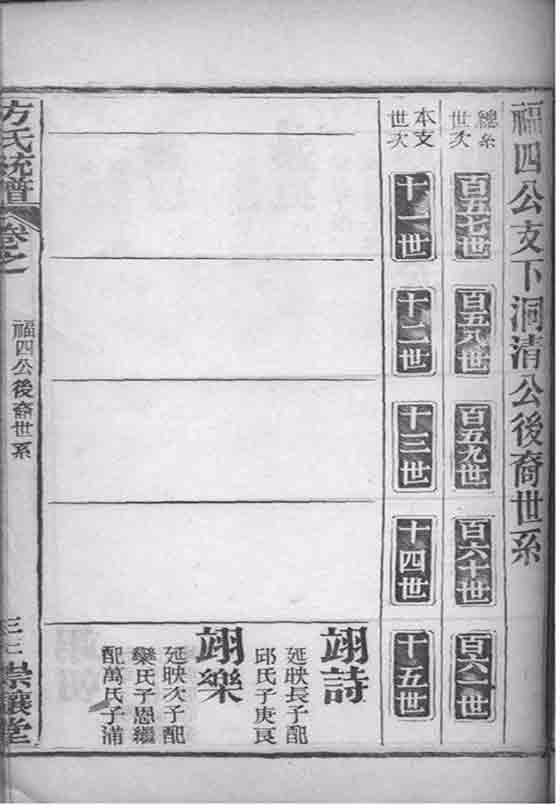 福四公支下洞清公後裔世系
總系世次
百五七世
百五八世
百五九世
百六十世
百六一世
本支世次
十一世
十二世
十三世
十四世
十五世
翊詩
延映長子配
邱氏子庚良
翊樂
延映次子配
欒氏子恩繼
配萬氏子滿
方氏統譜
卷之
福四公後裔世系
崇讓堂